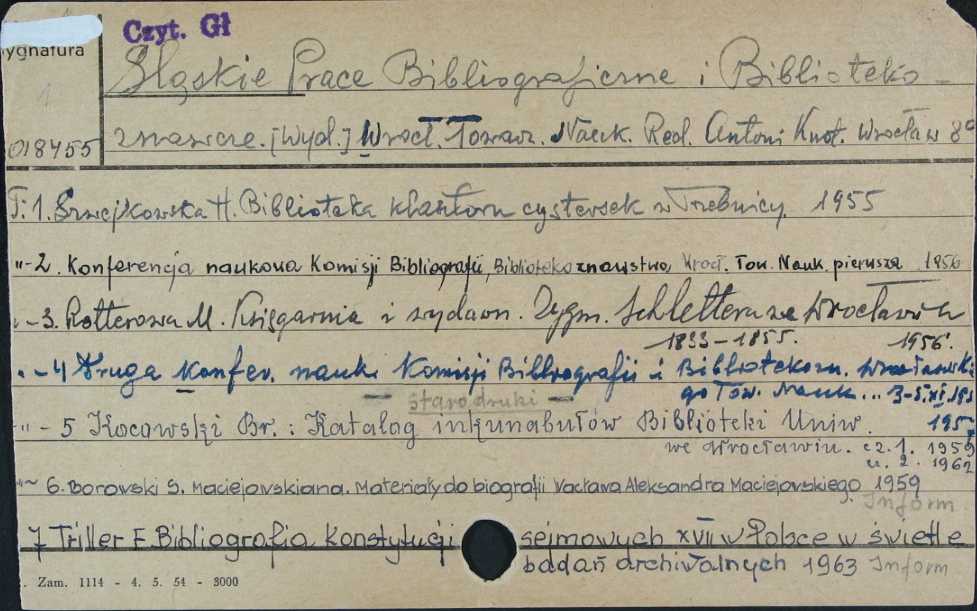 Czyt. Gł
ygnatura
Śląskie Prace Bibliograficzne i Biblioteko-
018455
znawcze. [Wyd.] Wrocł. Towarz. Nauk. Red. Antoni Knot. Wrocław 8°
T: 1. Szwejkowska H. Biblioteka klasztoru cysterek w Trzebnicy. 1955
"-2. Konferencja naukowa Komisji Bibliografii, Bibliotekoznawstwa Wrocł. Tow. Nauk. pierwsza 1956
-3. Rotterowa M. Księgarnia i wydawn. Zygm. Schlettera we Wrocławiu
1833-1855. 1956.
-4 Druga Konfer. nauk. Komisji Bibliografii i Bibliotekozn. Wrocławskie
go Tow. Nauk... 3-5.XI.195
1957
— starodruki —
"-5 Kocowski Br.: Katalog inkunabułów Biblioteki Uniw.
we Wrocławiu. cz. 1. 1959
cz. 2. 1962
"- 6. Borowski S. Maciejowskiana. Materiały do biografii Wacława Aleksandra Maciejowskiego 1959
Inform
7 Triller E. Bibliografia Konstytucji sejmowych XVII w Polsce w świetle
badań archiwalnych 1963 Inform
. Zam. 1114 - 4. 5. 54 - 3000